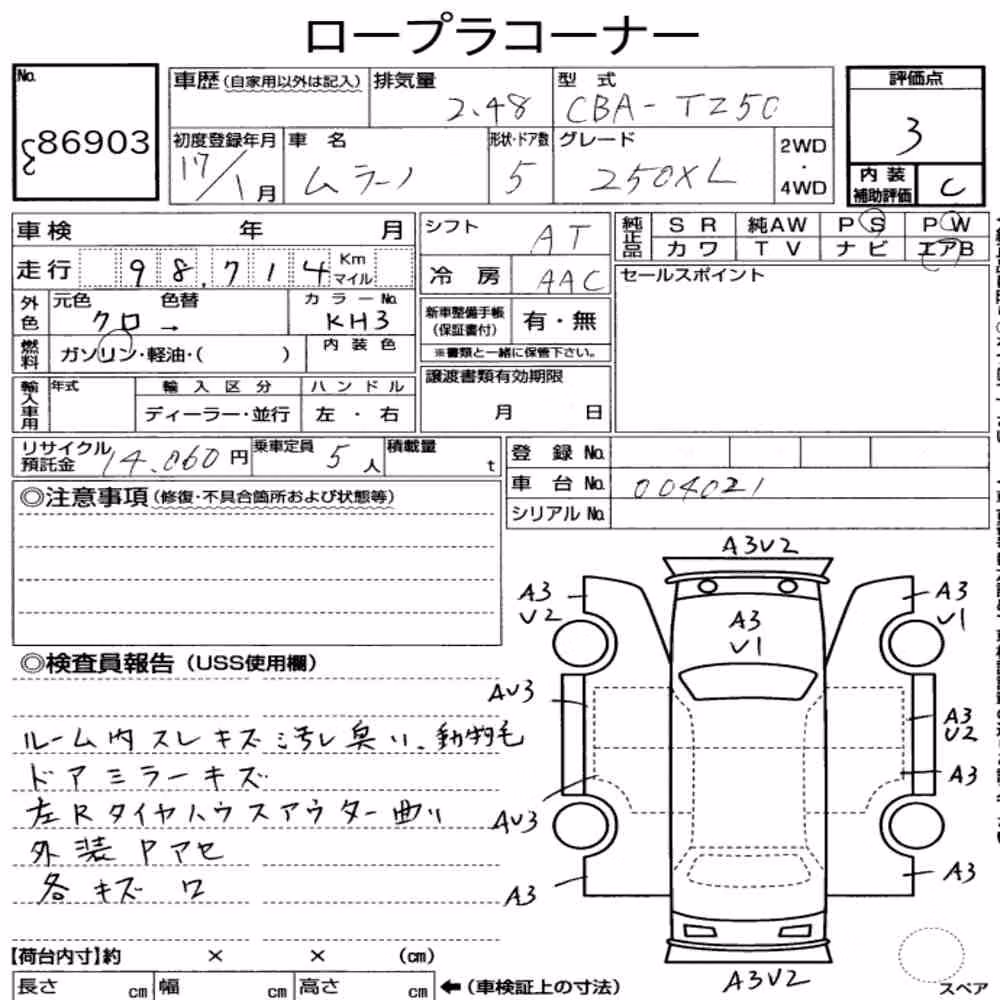 ロープラコーナー
No.
86903
車歴(自家用以外は記入)
排気量
2.48
型 式
CBA-TZ50
評価点
3
初度登録年月
17/1月
車 名
ムラーノ
形状・ドア数
5
グレード
250XL
2WD
・
4WD
内 装
補助評価
C
車検 年 月
シフト
AT
純正品
SR 純AW PS PW
カワ TV ナビ エアB
走行 98,714 Km マイル
冷 房
AAC
セールスポイント
外色
元色 色替
クロ →
カラーNo.
KH3
新車整備手帳
(保証書付)
有・無
※書類と一緒に保管下さい。
燃料
ガソリン・軽油・( )
内 装 色
輸入車用
年式
輸 入 区 分
ハ ン ド ル
ディーラー・並行
左 ・ 右
譲渡書類有効期限
月 日
リサイクル
預託金
14.060円
乗車定員
5人
積載量
t
登 録 No.
車 台 No.
004021
シリアル No.
◎注意事項(修復・不具合箇所および状態等)
◎検査員報告(USS使用欄)
ルーム内スレキズ汚レ臭い、動物毛
ドアミラーキズ
左Rタイヤハウスアウター曲り
外装Pアセ
各キズワ
A3V2
A3
V2
A3
V1
A3
V1
AV3
A3
V2
A3
AV3
A3
A3
A3V2
【荷台内寸】約 × × (cm)
長さ cm 幅 cm 高さ cm ←(車検証上の寸法)
スペア